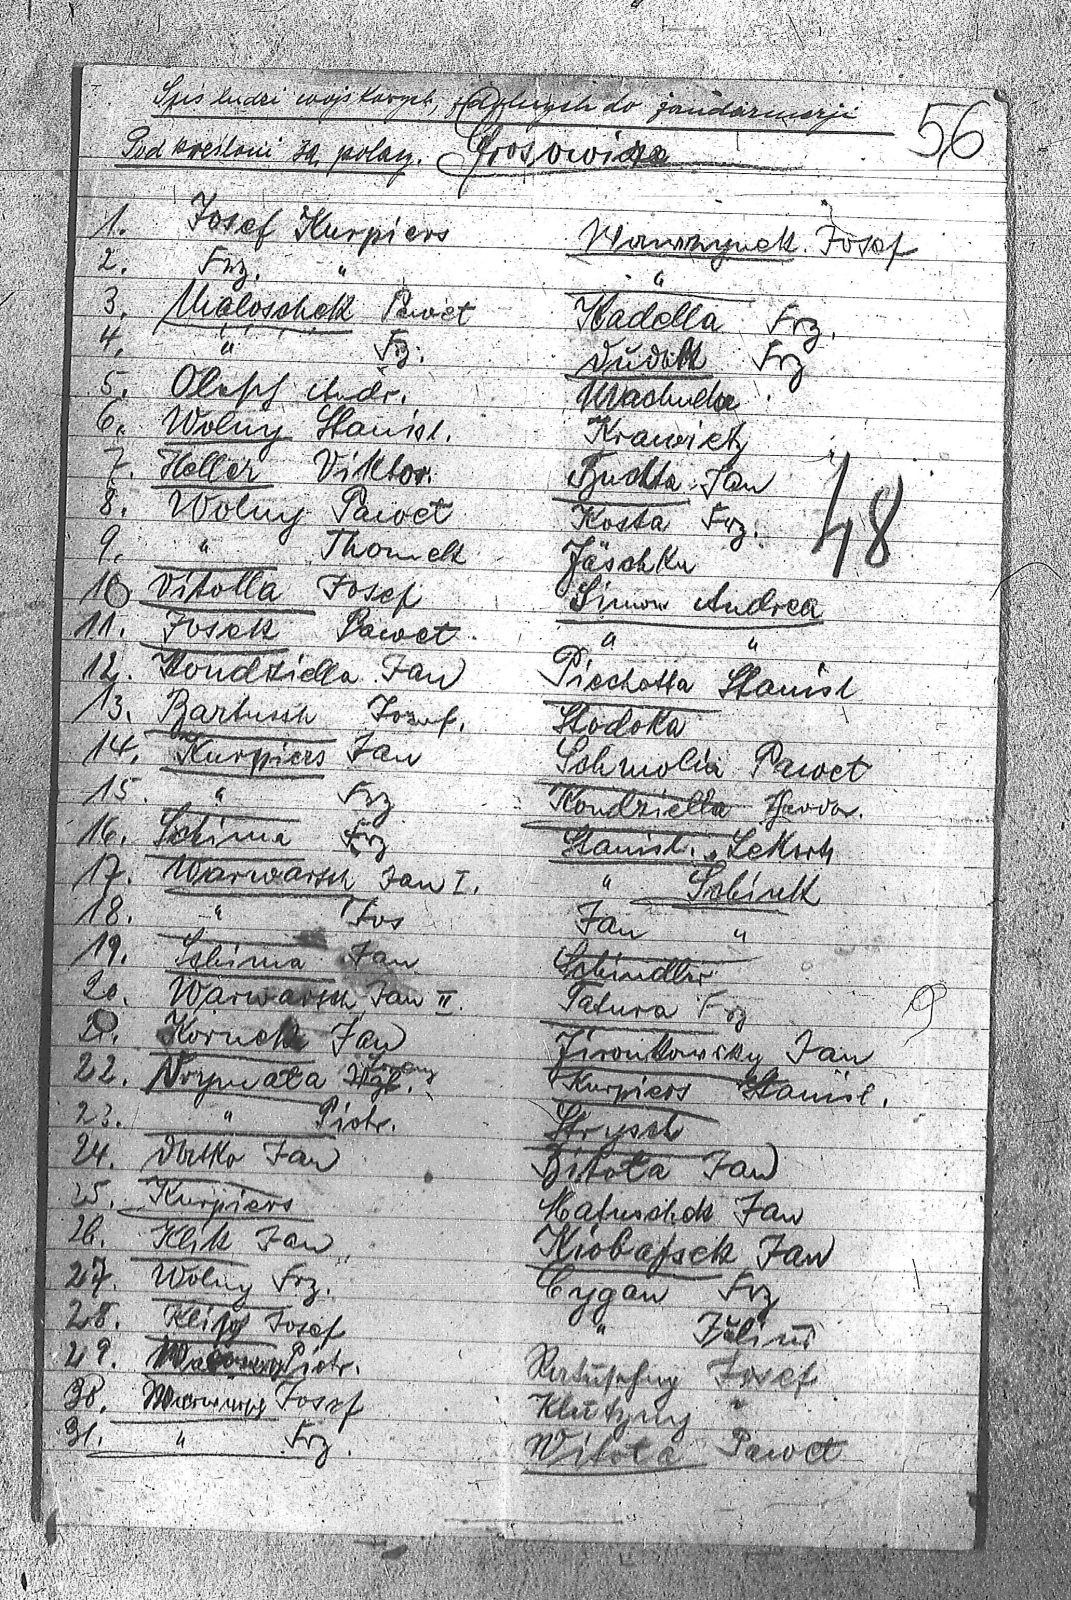 Spis ludzi wojskowych, zdolnych do żandarmerji
56
Podkreśleni są polacy. Groszowice
1. Josef Kurpiers
2. Frz. "
3. Maloschek Paweł
4. " Frz.
5. Andr.
6. Wolny Stanisl.
7. Heller Viktor.
8. Wolny Paweł
9. " Thomek
10 Vitolla Josef
11. Josek Paweł
12. Kondziella Jan
13. Bartusch Josef.
14. Kurpiers Jan
15. " Frz
16. Schima Frz
17. Warwarsch Jan I.
18. " Jos
19. Schima Jan
20. Warwarsch Jan II.
21. Jan
22.
23. " Piotr.
24. Jan
25. Kurpiers
26. Klik Jan
27. Wolny Frz.
28. Josef
29. Piotr.
30. Josef
31. " Frz.
Wawrzynek Josef
"
Kadella Frz.
Dudek Frz
Machnda
Krawietz
Buchta Jan
Kosta Frz.
48
Jäschke
Simon Andrea
" "
Piechotta Stanisl
Stodoka
Schmolin Paweł
Kondziella
Stanisl.
" Schink
Jan "
Schindler
Patura Frz
Jan
Kurpiers Stanisl.
Strysch
Zitota Jan
Matuschek Jan
Kiobassek Jan
Cygan Frz
"
Josef
"
Witota Paweł